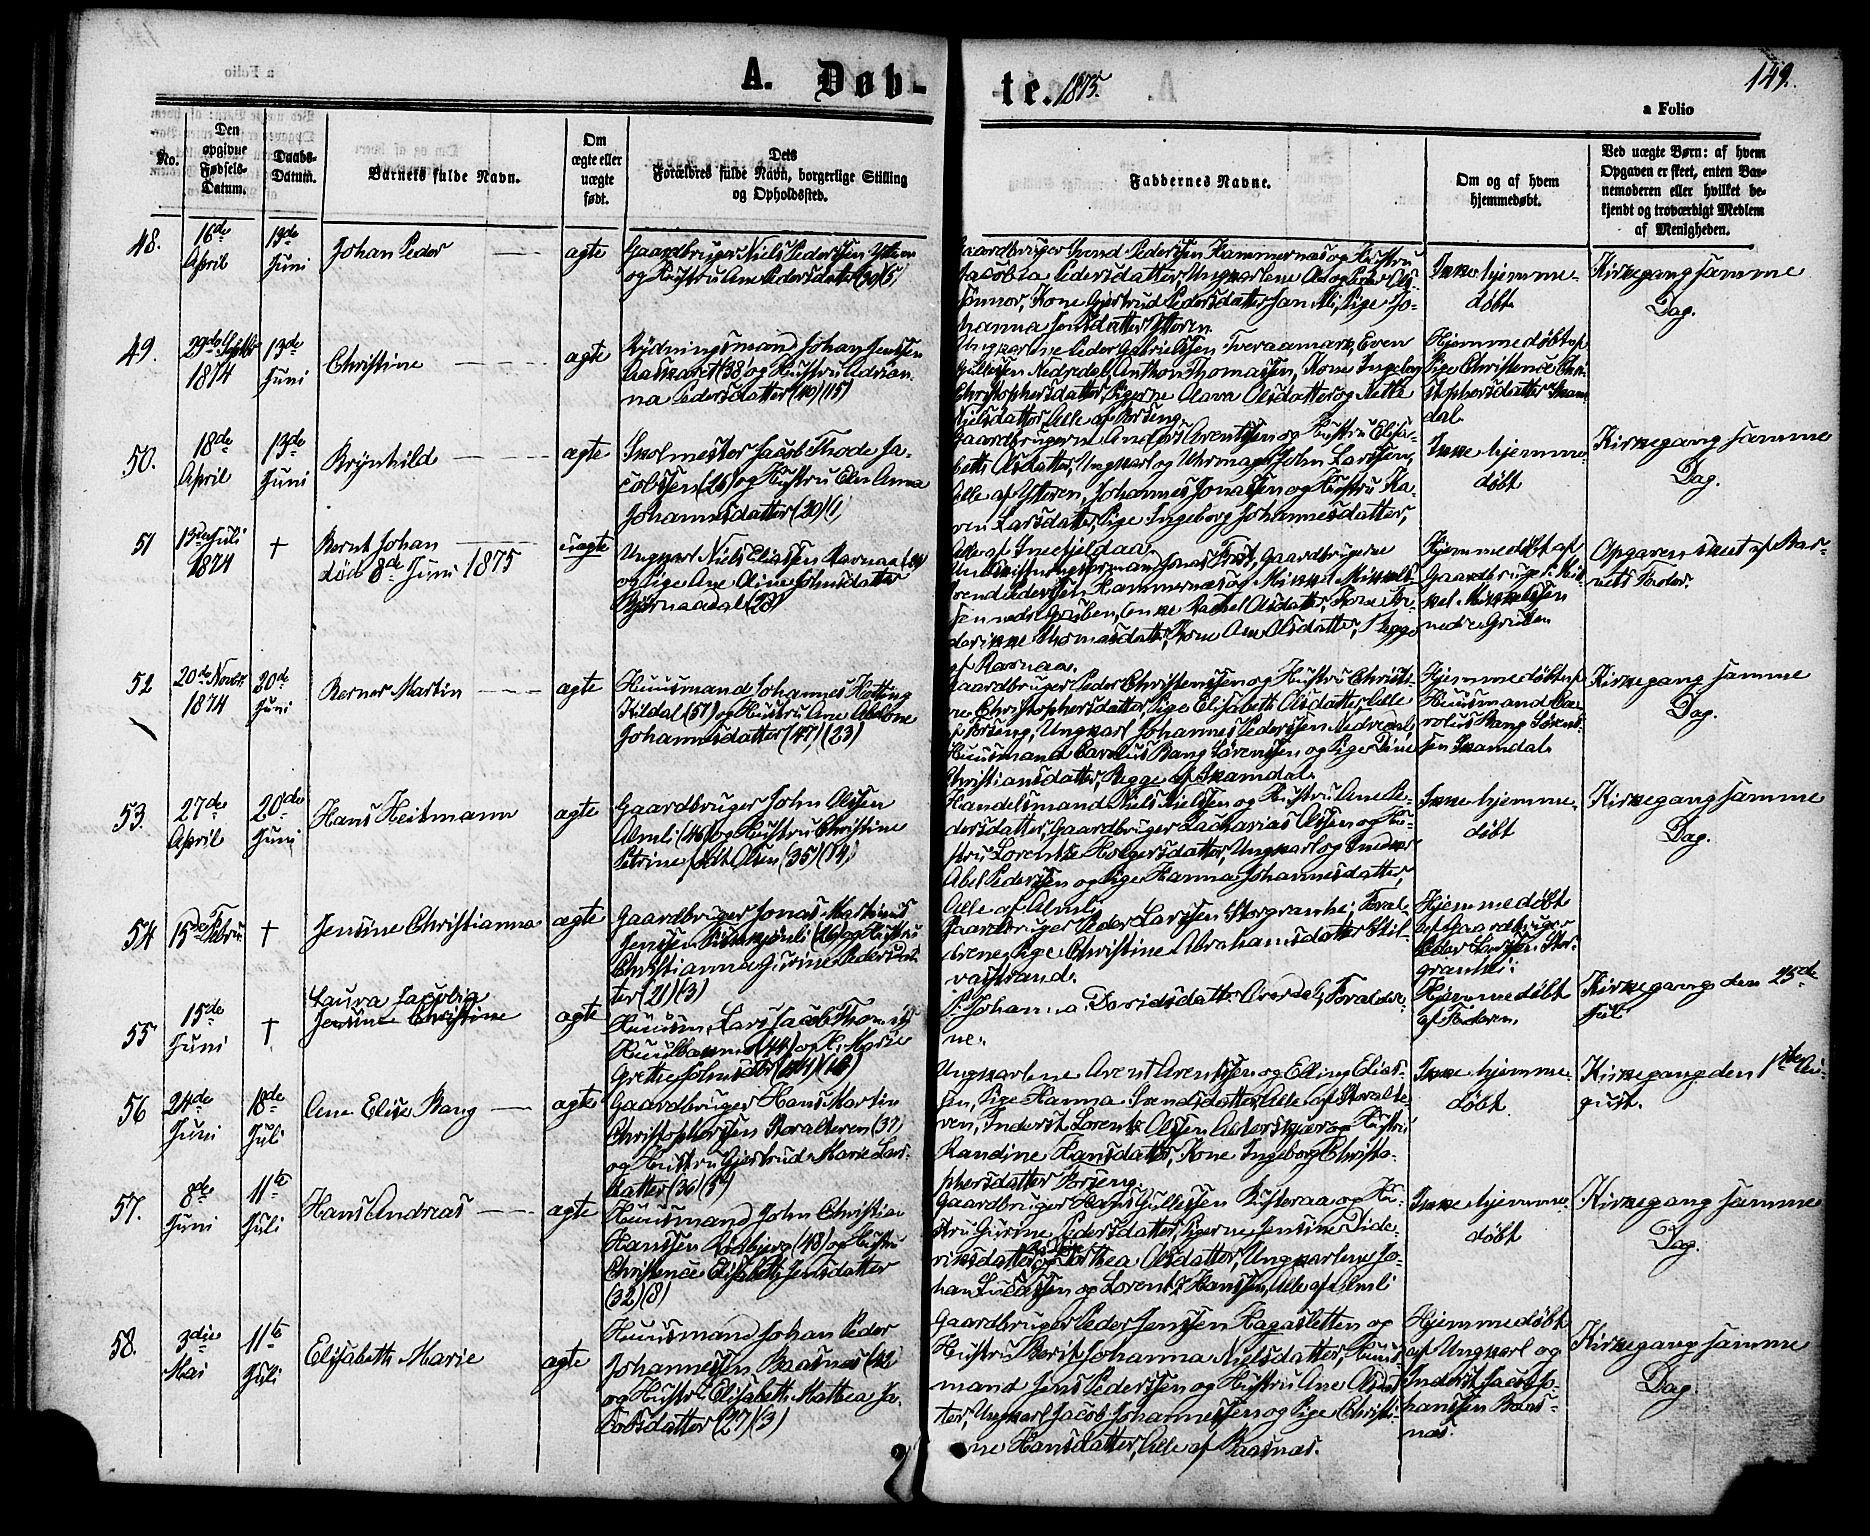 A. Døb-
te. 1875.
149.
a Folio
No.
Den
opgivne
Fødsels-
Datum.
Daabs-
Datum.
Barnets fulde Navn.
Om
ægte eller
uægte
født.
Dets
Forældres fulde Navn, borgerlige Stilling
og Opholdssted.
Faddernes Navne.
Om og af hvem
hjemmedøbt.
Ved uægte Børn: af hvem
Opgaven er skeet, enten Bar-
nemoderen eller hvilket be-
kjendt og troværdigt Medlem
af Menigheden.
48.
16de
April
13de
Juni
Johan Peder
ægte
Gaardbruger Niels Pederssen Ytteren
og Hustru Ane Pedersdatter
Gaardbruger Svend Pederssen Hammernæs og Hustru
Jacobia Pedersdatter, Ungkarlene
Kone Gjertrud Pedersdatter Pige Jo-
hanna Jensdatter Ytteren.
Ikke hjemme-
døbt
Kirkegang samme
Dag.
49.
29de Septbr
1874
13de
Juni
Christine
ægte
Rydningsmand Johan Jenssen
(38) og Hustru Adrian-
na Pedersdatter (40)(15)
Ungkarlene Peder Gabrielssen Tveraamark, Even
Gullessen Nedredal, Anthon Thomassen, Kone Ingeborg
Christophersdatter, Pigerne Olava Olsdatter og Nille
Nielsdatter, Alle af Røseng.
Hjemmedøbt af
Pige Christence Chri-
stophersdatter Skam-
dal
50.
18de
April
13de
Juni
Brynhild
ægte
Skolmester Jacob Thode Ja-
cobssen (26) og Hustru Elen Anna
Johannesdatter (20)(1)
Gaardbrugerne Anders Arentssen og Hustru Elisa-
beth Olsdatter, Ungkarl og Uhrmager John Larssen,
Alle af Ytteren, Johannes Jonassen og Hustru Ka-
ren Larsdatter, Pige Ingeborg Johannesdatter,
Alle af
Ikke hjemme-
døbt
Kirkegang samme
Dag.
51
13de Juli
1874
+
Bernt Johan
døbt 8de Juni 1875
uægte
Ungkarl Niels Eliassen
og Pige Ane Oline Johnsdatter
Bjørnaadal (23)
Jonas Gaardbrugerne
Svend Pederssen Hammernæs og Mikkel Mikkels-
sen nedre Gruben, Enke Rachel Olsdatter, Kone
Thomasdatter, Kone Ane Olsdatter, Begge
af
Hjemmedøbt af
Gaardbruger Mik-
kel Mikkelssen
nedre Gruben
Opgaven skeet af Bar-
nets Fader.
52
20de Novbr
1874
20de
Juni
Berner Martin
ægte
Huusmand Johannes
Hildal (51) og Hustru Ane
Johannesdatter (47)(23)
Gaardbruger Peder Christenssen og Hustru Christi-
ne Christophersdatter, Pige Elisabeth Olsdatter, Alle
af Røseng, Ungkarl Johannes Pederssen Nedredal,
Huusmand Carolus Bang Sørenssen og Pige Dine
Christiansdatter, Begge af Skamdal.
Hjemmedøbt af
Huusmand Ca-
rolus Bang Sørens-
sen Skamdal.
Kirkegang samme
Dag.
53.
27de
April
20de
Juni
Hans Heitmann
ægte
Gaardbruger John Olssen
Almli (46) og Hustru Christine
Petrine født Olsen (35)
Handelsmand Niels Nielssen og Hustru Ane Pe-
dersdatter, Gaardbruger Zacharias Olssen og Hu-
stru Lorentze Holgersdatter, Ungkarl og
Abel Pederssen og Pige Hanna Johannesdatter,
Alle af Almli
Ikke hjemme-
døbt
Kirkegang samme
Dag.
54
15de Febru
+
Jensine Christianna
ægte
Gaardbruger Jonas Martinus
Jenssen og Hustru
Christianna Gurine Pedersdat-
ter (21)(3)
Gaardbruger Peder Larssen Storgranhei, Foræl-
drene, Pige Christine Abrahamsdatter Stil-
vastrand.
Hjemmedøbt
af Gaardbruger
Peder Larssen Stor-
granhei.
55
15de
Juni
+
Laura Jacobia
Jensine Christine
ægte
Huusm. Lars Jacob
(44) og H. Marie
Grethe Johnsdtr
P. Johanna Davidsdatt. Foræld-
ne.
Hjemmedøbt
af Faderen.
Kirkegang den 25de
Juli
56
24de
Juni
18de
Juli
Ane Elise Bang
ægte
Gaardbruger Hans Martin
Christopherssen Storalteren (37)
og Hustru Gjertrud Marie Lars-
datter (36)(5)
Ungkarlene Arent Arentssen og Elling Elias-
sen, Pige Hanna Svendsdatter, Alle af Storalte-
ren, Inderst Lorents Olssen og Hustru
Randine Hansdatter, Kone Ingeborg Christo-
phersdatter Røseng.
Ikke hjemme-
døbt.
Kirkegang den 1ste Au-
gust.
57.
8de
Juni
11te
Juli
Hans Andreas
ægte
Huusmand John Christian
Hanssen (48) og Hustru
Christence Elisabeth Jensdatter
(32)(8)
Gaardbruger Hans Gullessen og Hu-
stru Gurine Pedersdatter, Pigerne Jensine Dide-
riksdatter og Dorthea Olsdatter, Ungkarlene Jo-
han Lucassen og Lorents Hanssen, Alle af Almli
Ikke hjemme-
døbt
Kirkegang samme
Dag.
58.
3die
Mai
11te
Juli
Elisabeth Marie
ægte
Huusmand Johan Peder
Johannessen Baasnæs
og Hustru Elisabeth Mathea Ja-
cobsdatter (27)(3)
Gaardbruger Peder Jenssen Hagasletten og
Hustru Berit Johanna Nielsdatter, Huus-
mand Jens Pederssen og Hustru Ane Olsdat-
ter, Ungkarl Jacob Johannessen og Pige Christi-
ne Hansdatter, Alle af Baasnæs.
Hjemmedøbt
af Ungkarl og
Inderst Jacob Jo-
hanssen Baas-
næs.
Kirkegang samme
Dag.